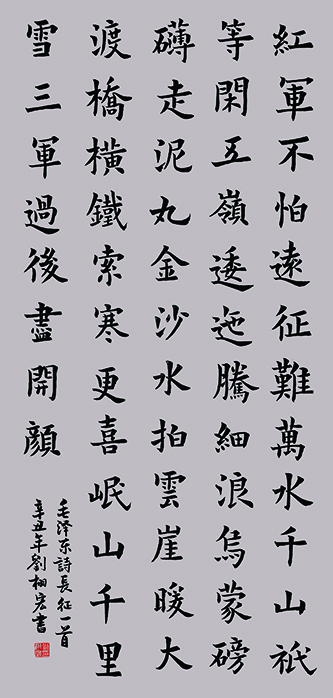 紅軍不怕遠征難萬水千山祇
等閑五嶺逶迤騰細浪烏蒙磅
礴走泥丸金沙水拍雲崖暖大
渡橋橫鐵索寒更喜岷山千里
雪三軍過後盡開顏
毛泽东詩長征一首
辛丑年劉書